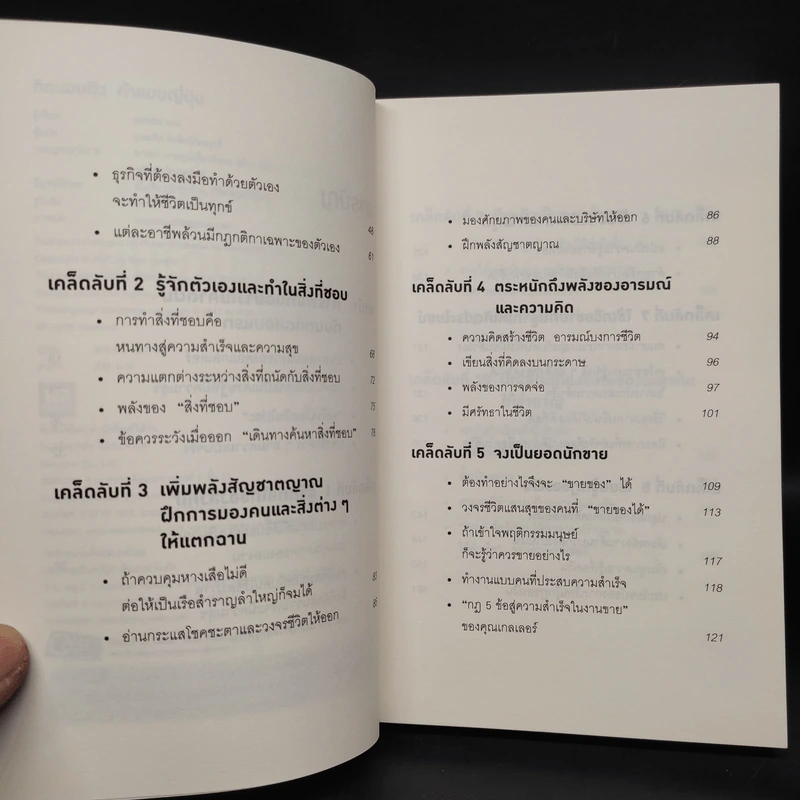 • ธุรกิจที่ต้องลงมือทำด้วยตัวเอง
จะทำให้ชีวิตเป็นทุกข์ 48
• แต่ละอาชีพล้วนมีกฎกติกาเฉพาะของตัวเอง 61
เคล็ดลับที่ 2 รู้จักตัวเองและทำในสิ่งที่ชอบ
• การทำสิ่งที่ชอบคือ
หนทางสู่ความสำเร็จและความสุข 68
• ความแตกต่างระหว่างสิ่งที่ถนัดกับสิ่งที่ชอบ 72
• พลังของ “สิ่งที่ชอบ” 75
• ข้อควรระวังเมื่อออก “เดินทางค้นหาสิ่งที่ชอบ” 78
เคล็ดลับที่ 3 เพิ่มพลังสัญชาตญาณ
ฝึกการมองคนและสิ่งต่าง ๆ
ให้แตกฉาน
• ถ้าควบคุมหางเสือไม่ดี
ต่อให้เป็นเรือสำราญลำใหญ่ก็จมได้
• อ่านกระแสโชคชะตาและวงจรชีวิตให้ออก
• มองศักยภาพของคนและบริษัทให้ออก 86
• ฝึกพลังสัญชาตญาณ 88
เคล็ดลับที่ 4 ตระหนักถึงพลังของอารมณ์
และความคิด
• ความคิดสร้างชีวิต อารมณ์บงการชีวิต 94
• เขียนสิ่งที่คิดลงบนกระดาษ 96
• พลังของการจดจ่อ 97
• มีศรัทธาในชีวิต 101
เคล็ดลับที่ 5 จงเป็นยอดนักขาย
• ต้องทำอย่างไรจึงจะ “ขายของ” ได้ 109
• วงจรชีวิตแสนสุขของคนที่ “ขายของได้” 113
• ถ้าเข้าใจพฤติกรรมมนุษย์
ก็จะรู้ว่าควรขายอย่างไร 117
• ทำงานแบบคนที่ประสบความสำเร็จ 118
• “กฎ 5 ข้อสู่ความสำเร็จในงานขาย”
ของคุณเกลเลอร์ 121